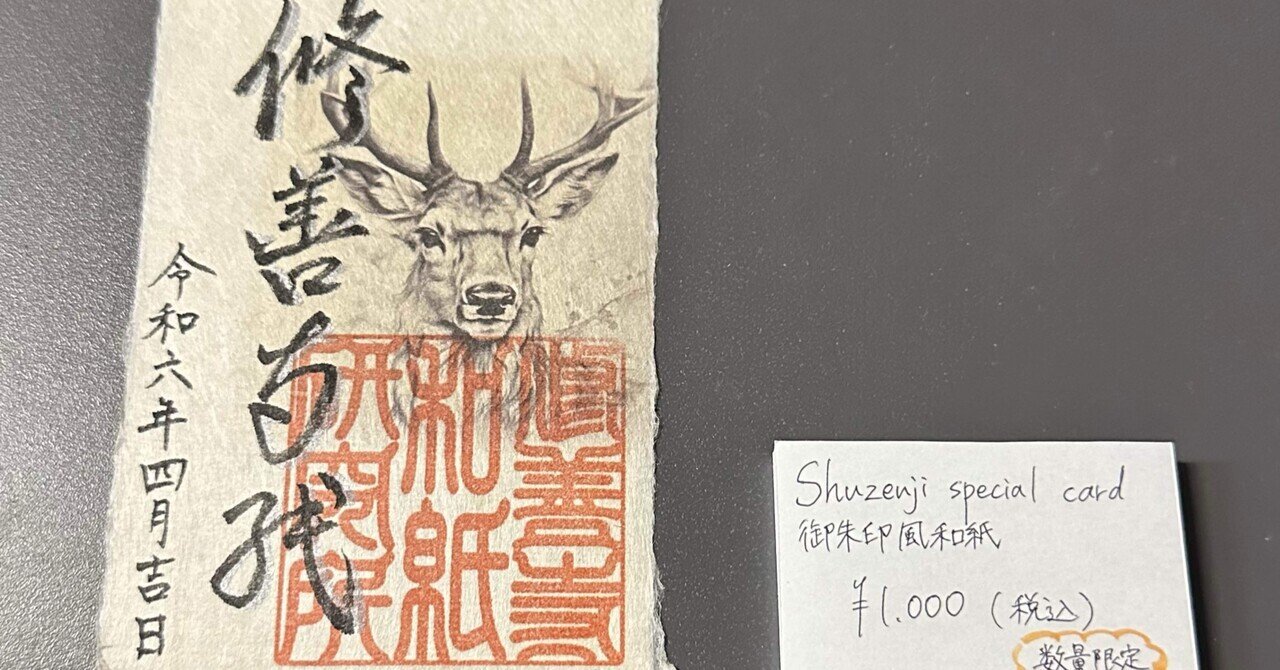 修善寺紙
修善寺
和紙
研究院
令和六年四月吉日
Shuzenji special card
御朱印風和紙
¥1.000 (税込)
数量限定